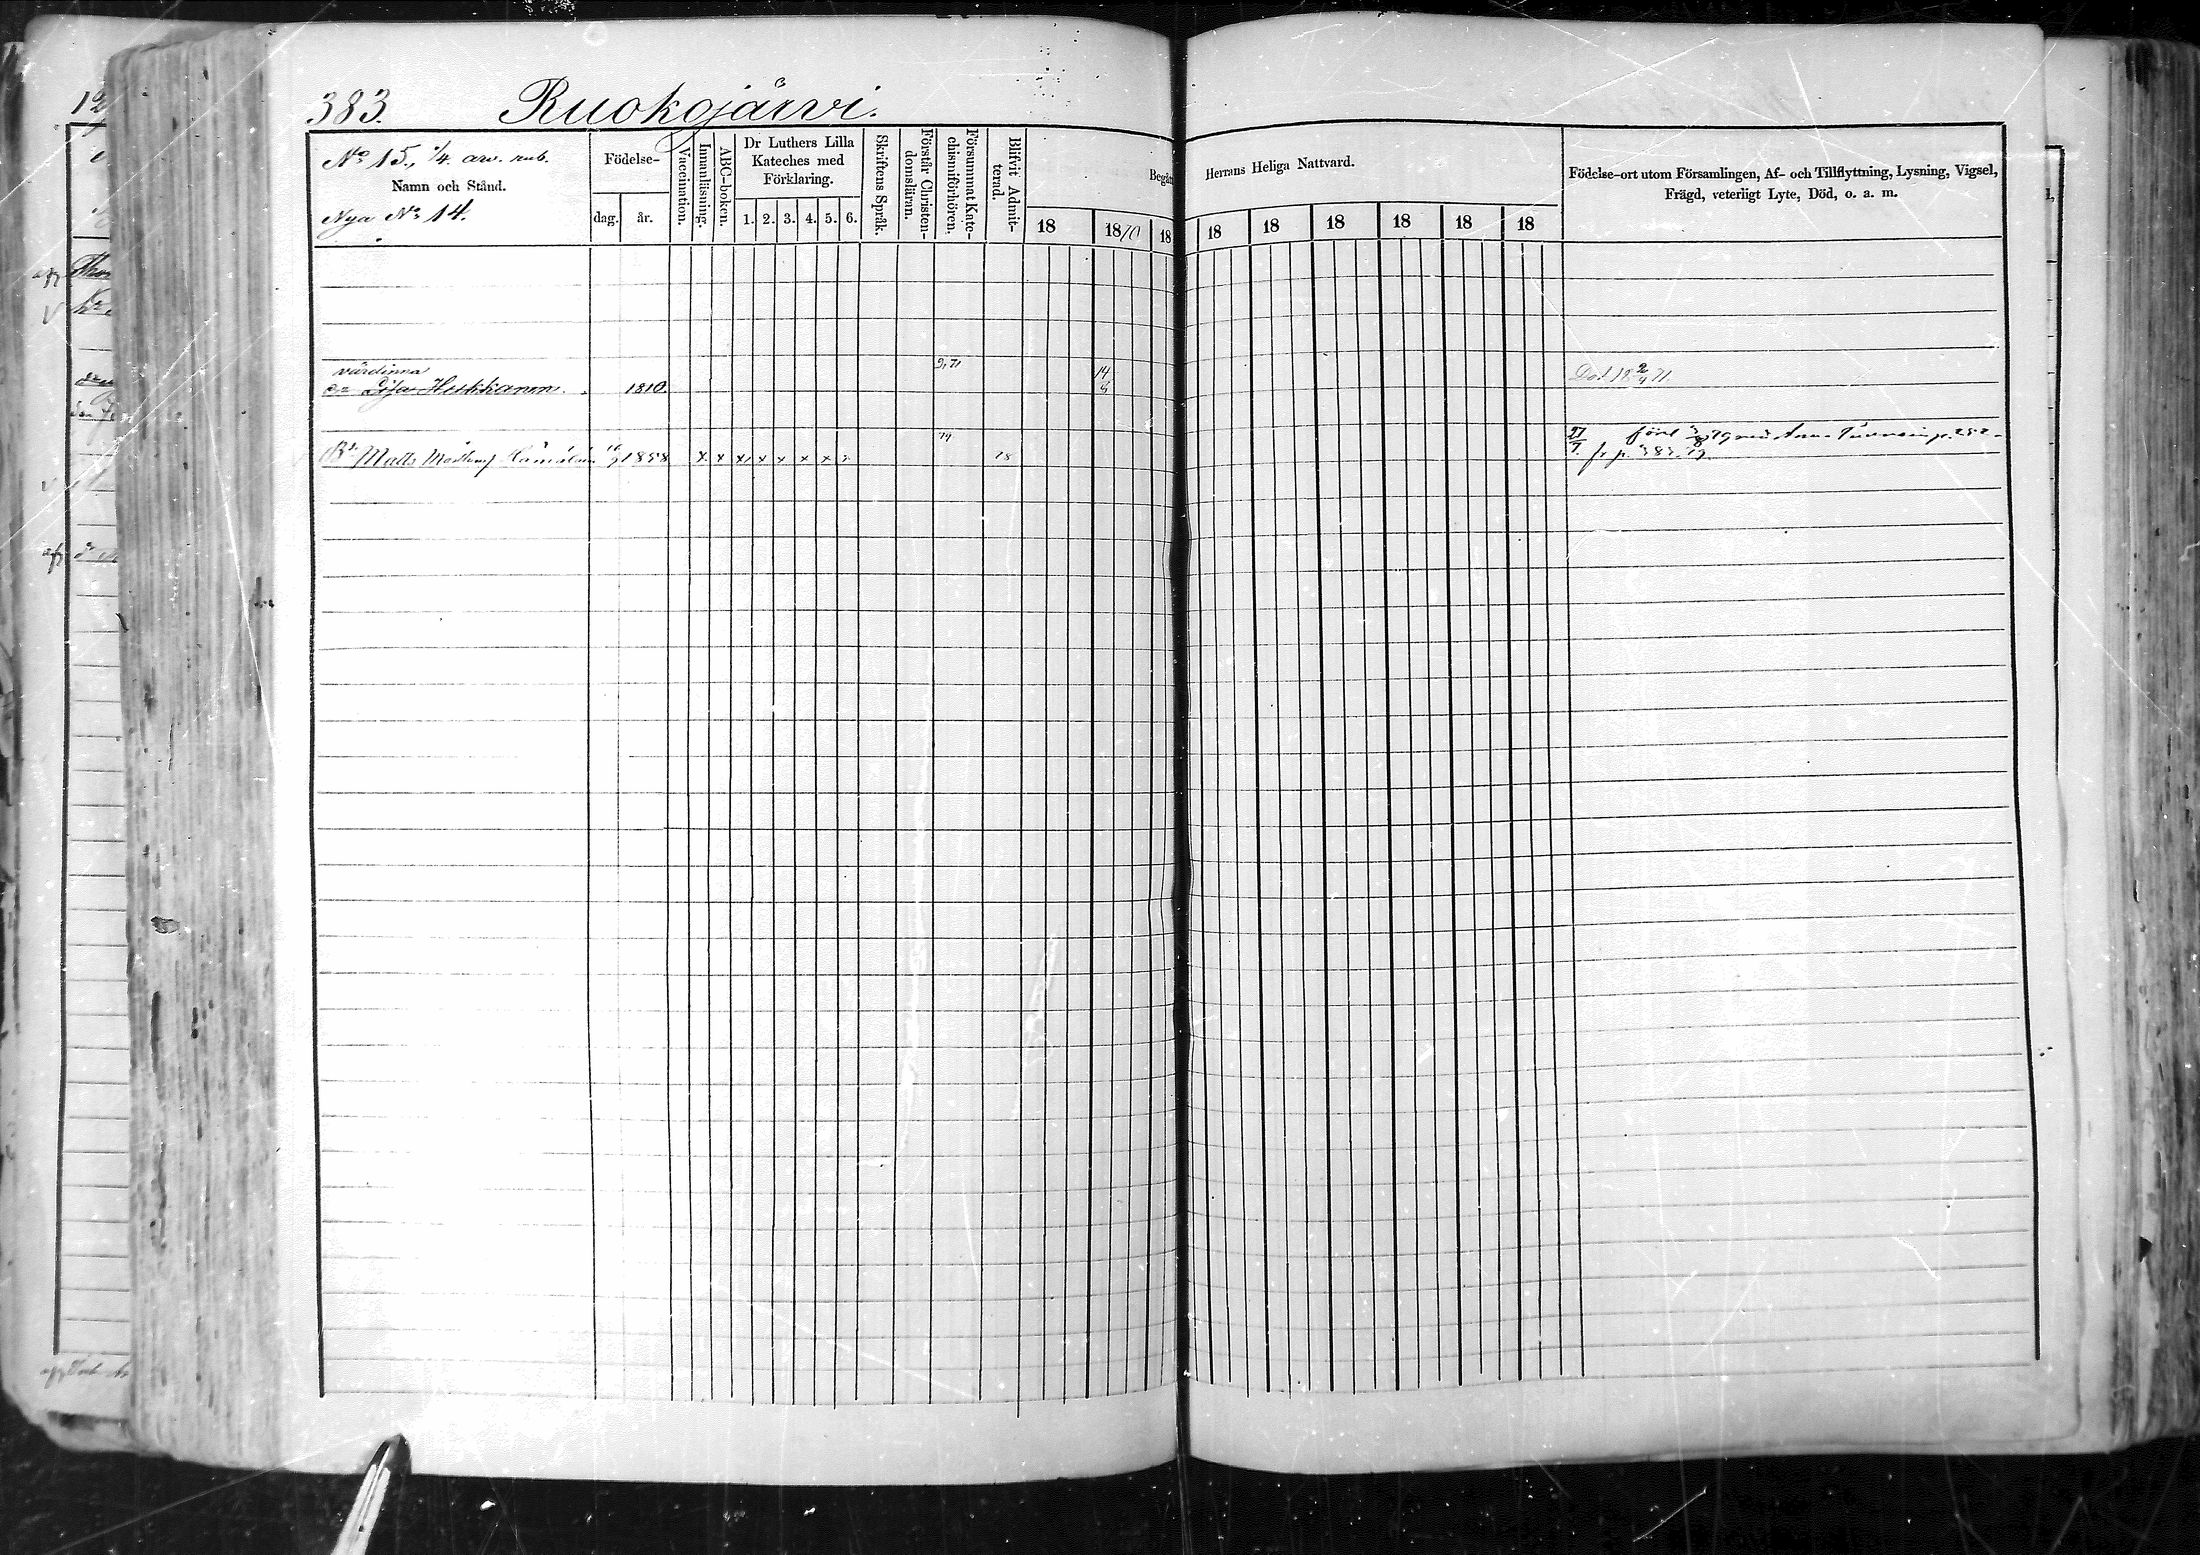 383. Ruokojärvi.
No 15, 1/4. arv. rub.
Namn och Stånd.
Nya No 14.
Födelse-
dag. år.
Vaccination.
Innanläsning.
ABC-boken.
Dr Luthers Lilla
Kateches med
Förklaring.
1. 2. 3. 4. 5. 6.
Skriftens Språk.
Förstår Christen-
domsläran.
Försummat Kate-
chismiförhören.
Blifvit Admit-
terad.
Begår Herrans Heliga Nattvard.
18 1870 18 18 18 18 18 18 18
Födelse-ort utom Församlingen, Af- och Tillflyttning, Lysning, Vigsel,
Frägd, veterligt Lyte, Död, o. a. m.
värdinna
Hukkanen. 1810. Död 18 2/4 71.
Matts 1858 x x x x x x x x 18